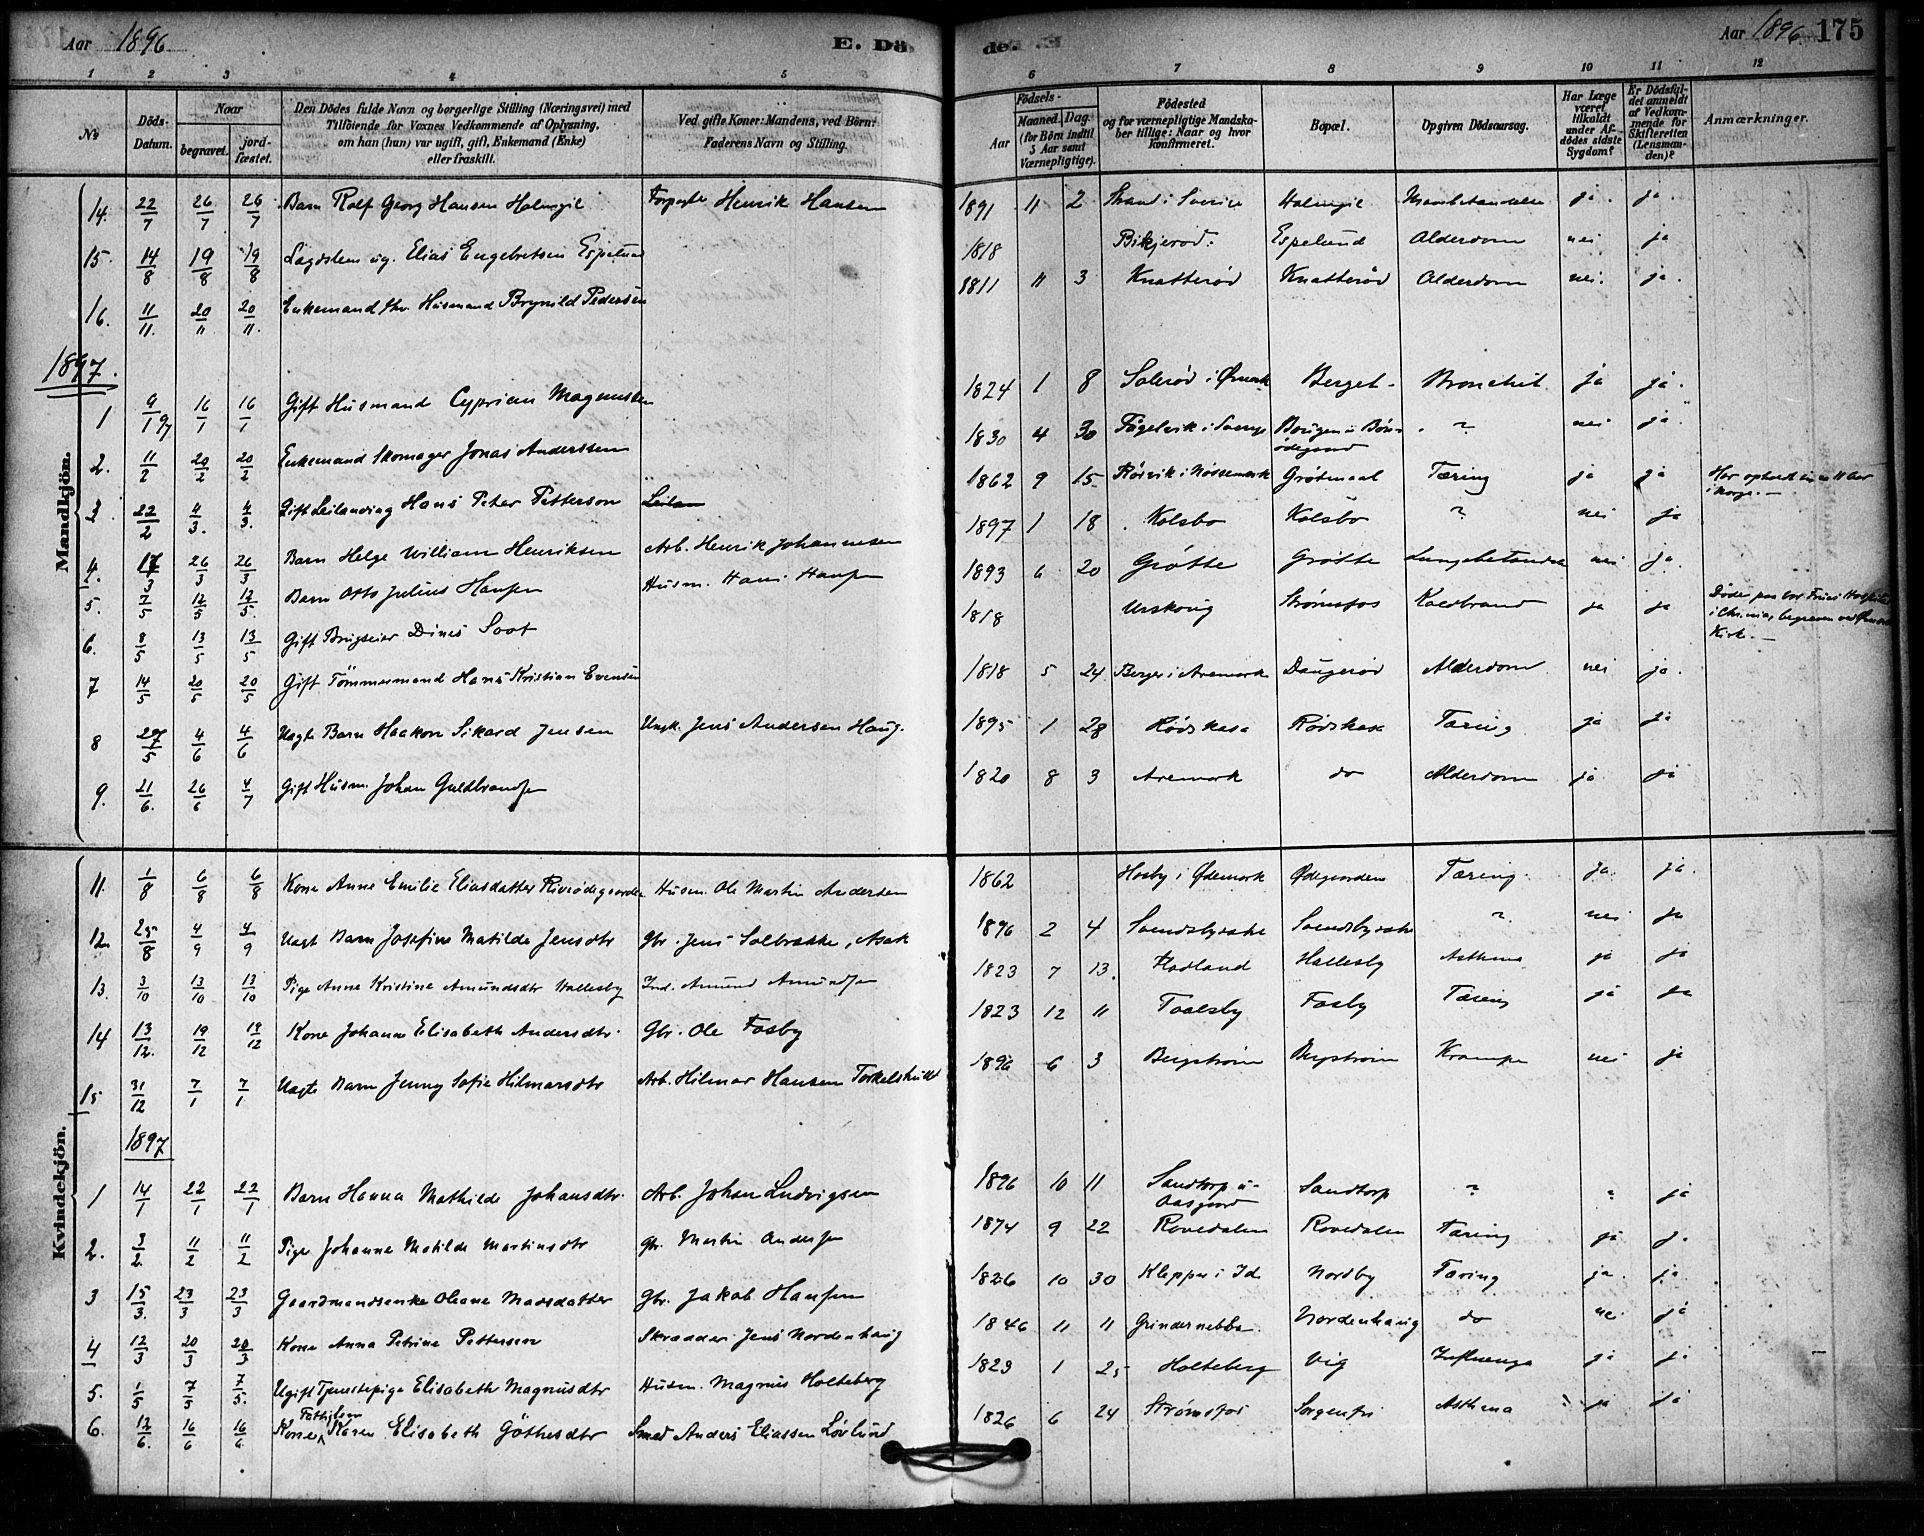 Aar 1896 E. Dö
de. Aar 1896 175
1 2 3 4 5
6 7 8 9 10 11 12
No
Döds-Datum.
Naar
begravet.
jord-fæstet.
Den Dödes fulde Navn og borgerlige Stilling (Næringsvei) med
Tilföiende for Voxnes Vedkommende af Oplysning,
om han (hun) var ugift, gift, Enkemand (Enke)
eller fraskilt.
Ved gifte Koner: Mandens, ved Börn:
Faderens Navn og Stilling.
Födsels-
Aar
Maaned. Dag.
(for Börn indtil
5 Aar samt
Værnepligtige).
Födested
og for værnepligtige Mandska-
ber tillige: Naar og hvor
konfirmeret.
Bopæl.
Opgiven Dödsaarsag.
Har Læge
været
tilkaldt
under Af-
dödes sidste
Sygdom?
Er Dödsfal-
det anmeldt
af Vedkom-
mende for
Skifteretten
(Lensman-
den)?
Anmærkninger.
Mandkjön.
14. 22/7 26/7 26/7 Barn Rolf Georg Hansen Holmgil Henrik Hansen 1891 11 2 Holmgil ja. ja.
15. 14/8 19/8 19/8 Elias Engebretsen Espelund 1818 Bikjerød. Espelund Alderdom nei ja
16. 11/11. 20/11 20/11. Enkemand fhv. Husmand Brynild Pedersen 1811 11 3 Knatterød Knatterød Alderdom nei. ja.
1897.
1 9/1 97 16/1 16/1 Gift Husmand Cyprian Magnussen 1824 1 8 Solerød i Ømark Berget Bronchit ja ja.
2. 11/2 20/2 20/2 Enkemand Skomager Jonas Anderssen 1830 4 30 ? nei ja
3 22/2 4/3. 4/3. Gift Hans Peter Petterson 1862 9 15 Tæring ja ja
4. 17/3 26/3 26/3 Barn Helge William Henriksen Arb. Henrik Johannesen 1897 1 18 Kolsbo Kolsbo ? nei ja
5. 7/5 12/5 12/5. Barn Otto Julius Hansen Husm. Hans Hansen 1893 6 20 Grøtte Grøtte nei ja.
6. 8/5 13/5 13/5 Gift Brugseier Dines Soot 1818 Urskoug Strømsfos Koldbrand ja ja
7 14/5 20/5 20/5 Gift Tömmermand Hans Kristian Evensen 1818 5 24 Berger i Aremark Daugerød Alderdom nei ja.
8 27/5 4/6 4/6 Uægte Barn Haakon Sikard Jensen Ungk. Jens Andersen Haug. 1895 1 28 Rødskasa Tæring ja ja
9. 21/6. 26/6 4/7 Gift Husm. Johan Guldbransen 1820 8 3 Aremark do Alderdom ja ja
Kvindekjön.
11. 1/8 6/8 6/8 Kone Anne Emilie Eliasdatter Husm. Ole Martin Andersen 1862 Hosby i Ødemark Ødegaarden Tæring. ja. ja.
12. 25/8 4/9 4/9 Uægt Barn Josefine Matilde Jensdtr Gbr. Jens Solbrække, Asak 1896 2 4 ? nei ja
13. 3/10 13/10 13/10 Pige Anne Kristine Amundsdtr Hallesby Ind. Amund Amundsen 1823 7 13. Hallesby Asthma ja ja
14 13/12. 19/12 19/12 Kone Johanne Elisabeth Andersdtr. Gbr. Ole Fosby 1823 12 11 Toolsby Fosby Tæring ja ja
15 31/12 7/1 7/1 Uægte Barn Jenny Sofie Hilmarsdtr Arb. Hilmar Hansen 1896 6 3 Bergstrøm Bergstrøm Krampe nei ja
1897
1 14/1 22/1 22/1 Barn Hanna Mathilde Johansdtr. Arb. Johan Ludvigsen 1896 10 11 Sandtorp u. Aasgaard Sandtorp ? ? ja
2. 3/2. 11/2 11/2 Pige Johanne Matilde Martinsdtr Gbr. Martin Andersen 1874 9 22 Rovedalen Rovedalen Tæring ja j.
3 15/3. 23/3 23/3 Gaardmandsenke Oleane Madsdatter Gbr. Jakob Hansen 1826 10 30 Klepper i Id Nordby Tæring ja. ja.
4 12/3 20/3 20/3 Kone Anna Petrine Pettersen Skrædder Jens Nordenhaug 1846 11 11 Grindernebba. Nordenhaug do nei ja
5. 1/5 7/5 7/5. Ugift Tjenestepige Elisabeth Magnusdtr Husm. Magnus Holteberg 1823 1 25 Holteberg Vig Influenza ja ja
6. 12/6. 16/6 16/6. Kone Karen Elisabeth Göthesdtr Smed Anders Eliassen Lövlund 1826 6 24 Strømsfos Sorgenfri Asthma ja ja